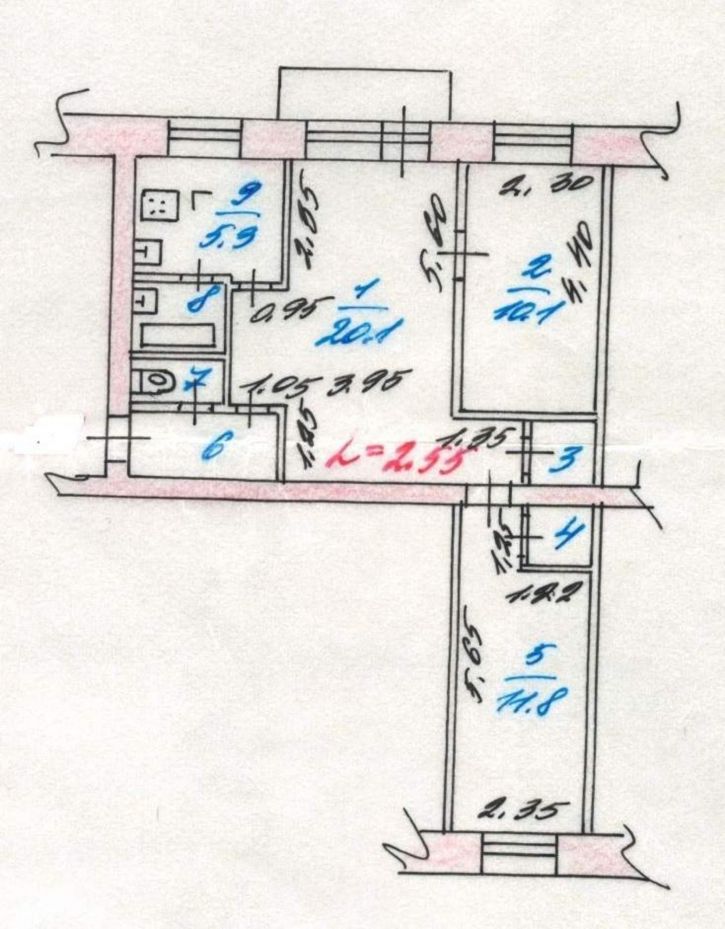 9
5.9
2.85
2.30
5.60
2
10.1
4.40
8
0.95
1
20.1
7
1.05 3.95
6
1.25
1.35
h=2.55
3
1.25
4
1.22
5.65
5
11.8
2.35